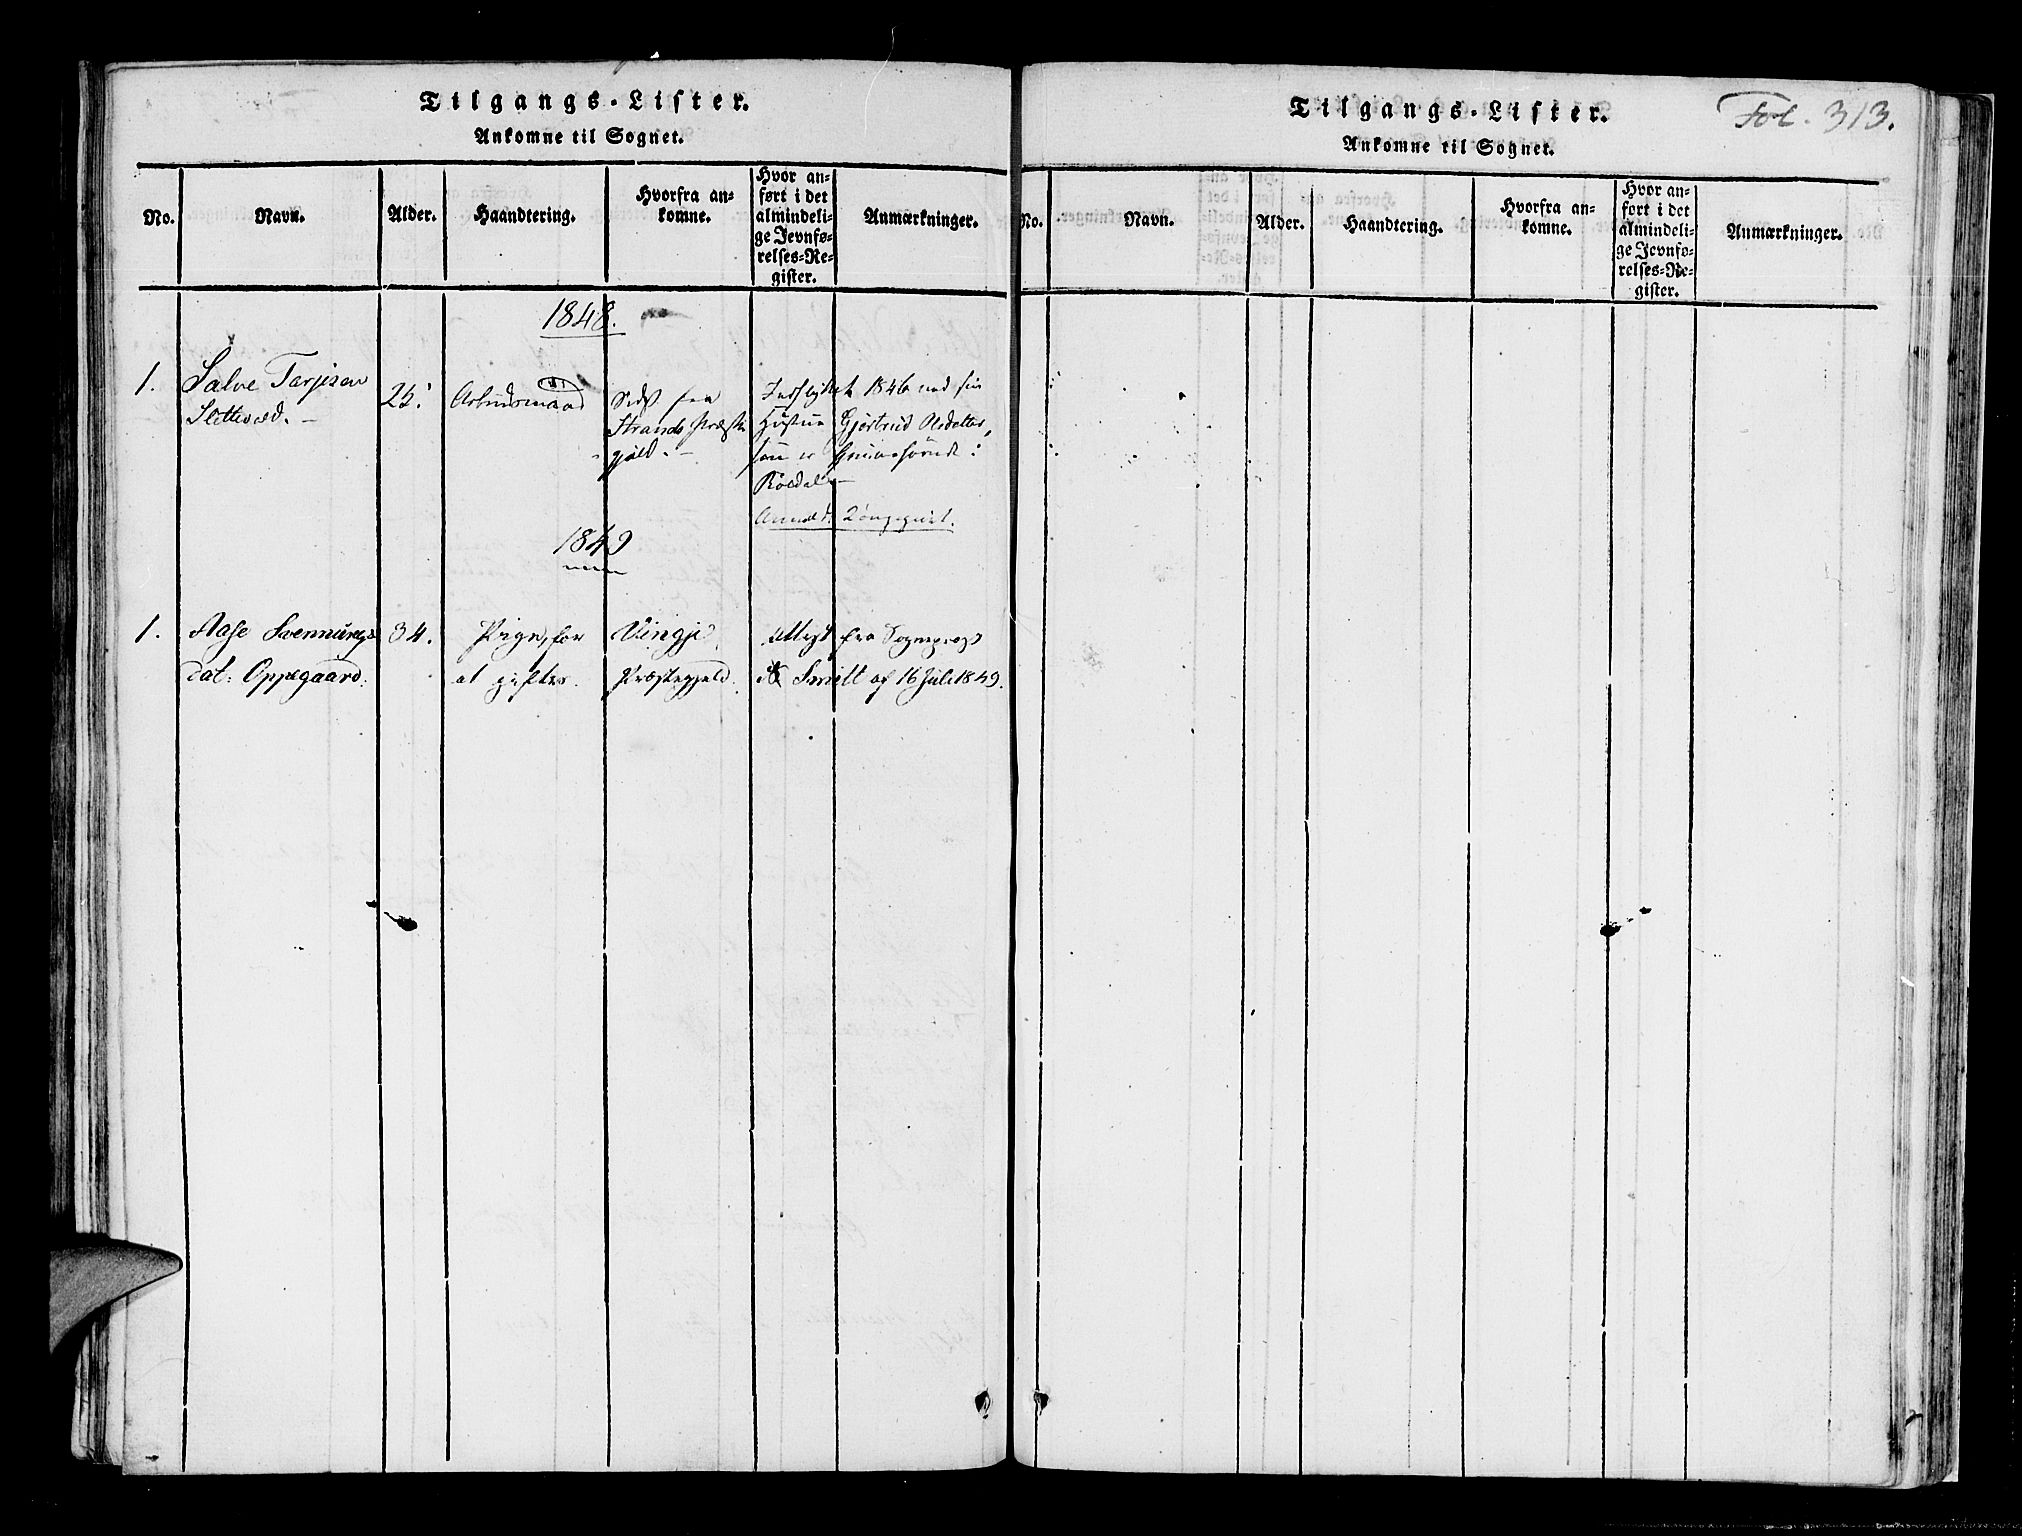 Tilgangs-Lister.
Ankomne til Sognet.
No.
Navn.
Alder.
Haandtering.
Hvorfra an-
komne.
Hvor an-
ført i det
almindeli-
ge Jevnfø-
relses-Re-
gister.
Anmærkninger.
1848.
1.
Salve Tarjesen
25.
Arbeidsmand
sidst fra
Strands Præste
gjeld.
Indflyttet 1846 med sin
Hustru Gjertrud
Røldal
1849
1.
Aase Svennungs
dat: Oppegaard.
34.
Pige, for
at giftes.
Vingje
Præstegjeld.
Attest fra Sognepræst
Smitt af 16 Juli 1849.
Tilgangs-Lister.
Ankomne til Sognet.
Fol. 313.
No.
Navn.
Alder.
Haandtering.
Hvorfra an-
komne.
Hvor an-
ført i det
almindeli-
ge Jevnfø-
relses-Re-
gister.
Anmærkninger.